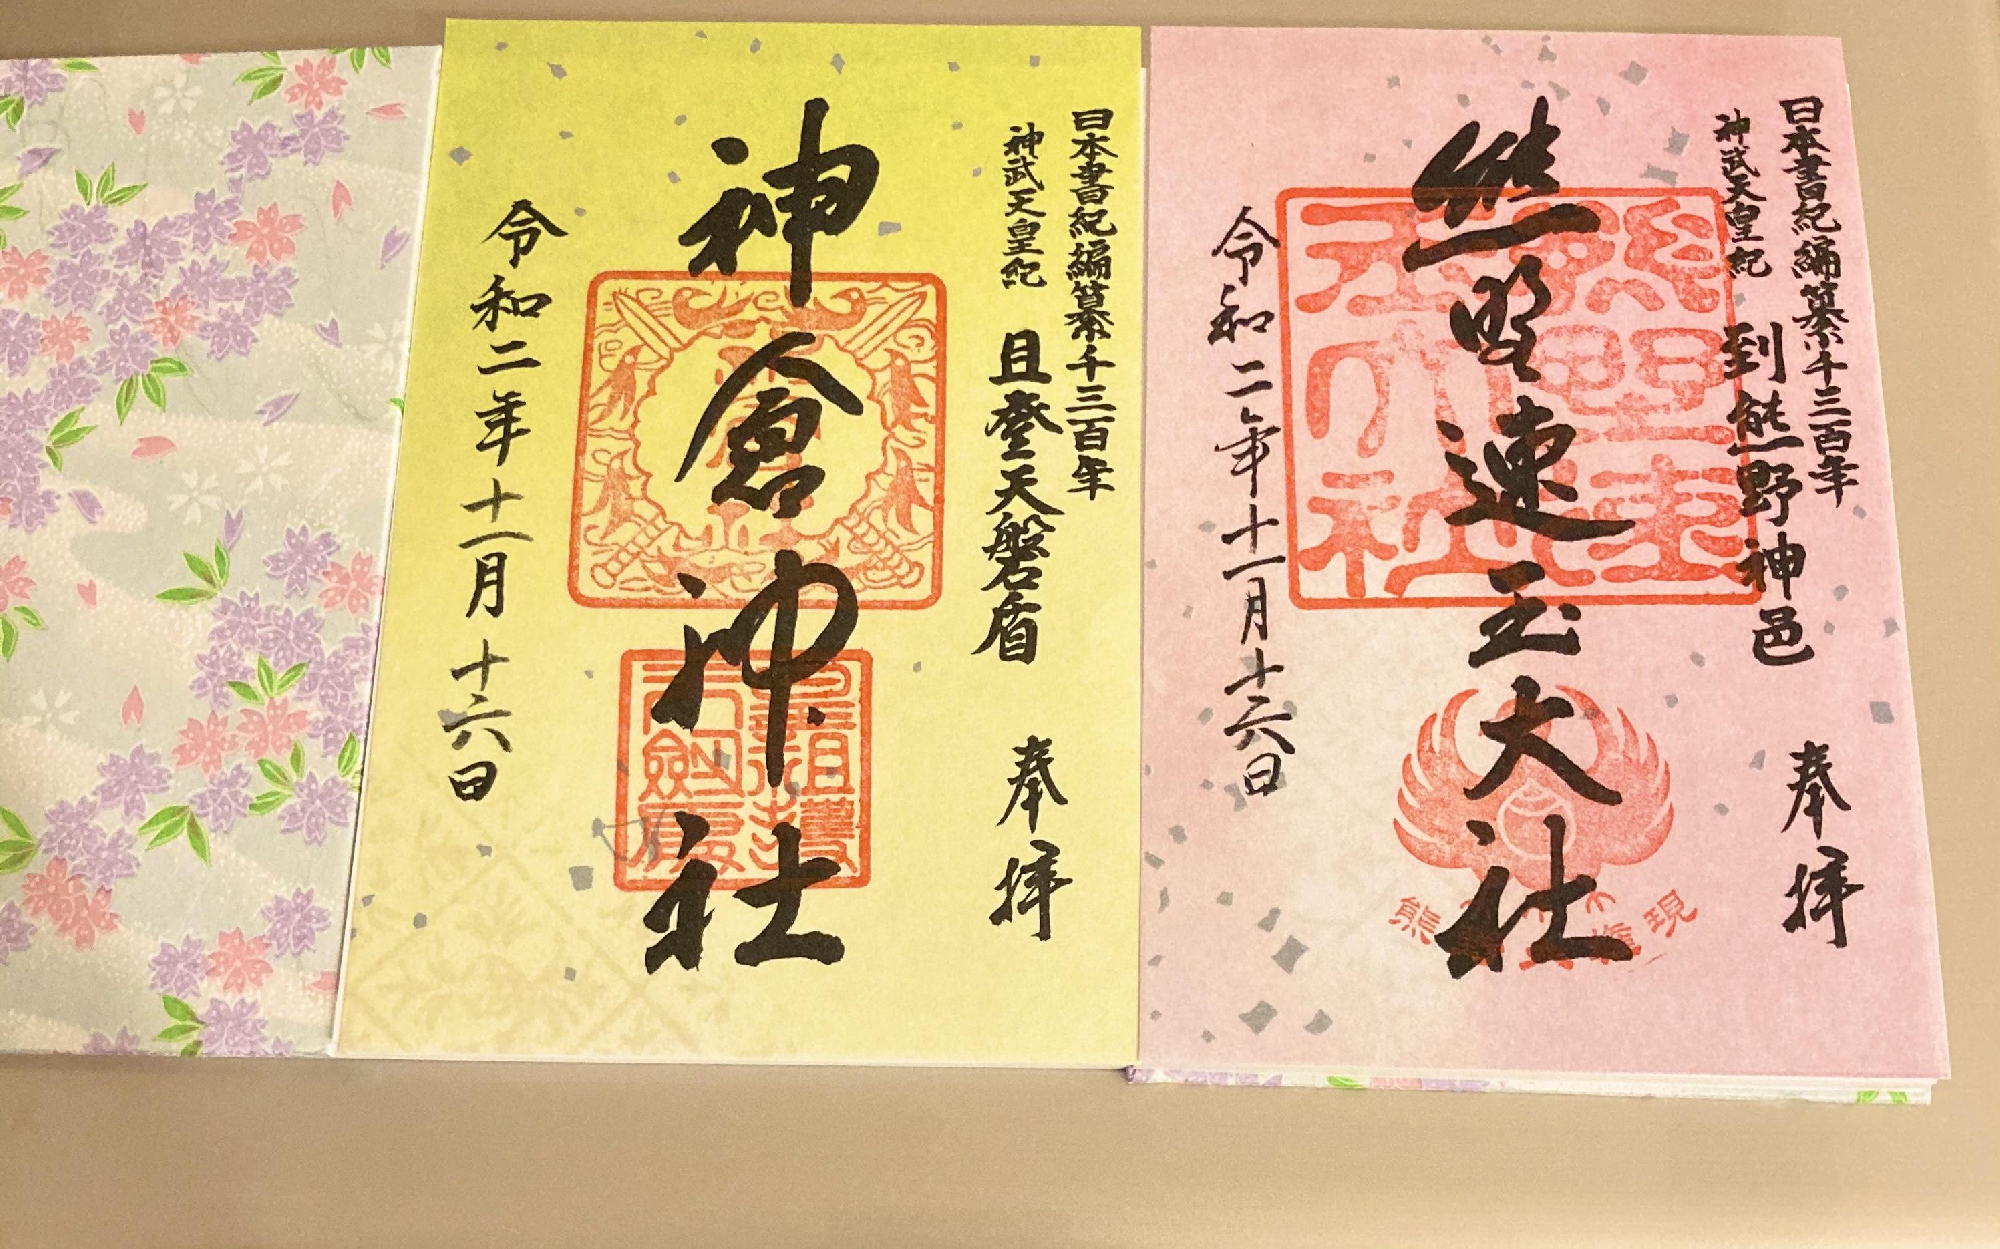 日本書紀編纂千三百年
神武天皇紀 到熊野神邑
奉拝
熊野速玉大社
熊野速玉大社
熊 権現
令和二年十一月十六日
日本書紀編纂千三百年
神武天皇紀 且登天磐盾
奉拝
神倉神社
令和二年十一月十六日